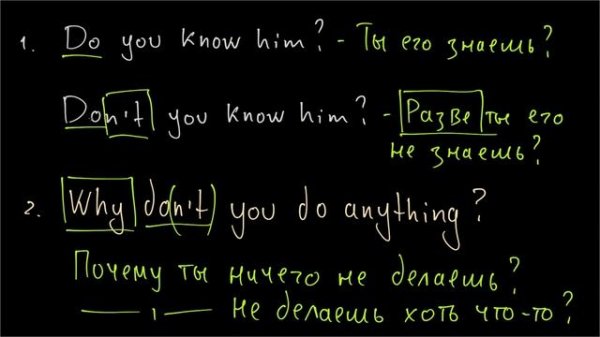 1. Do you know him? - Ты его знаешь?
Don't you know him? - Разве ты его
не знаешь?
2. Why don't you do anything?
Почему ты ничего не делаешь?
—— ı —— не делаешь хоть что-то?